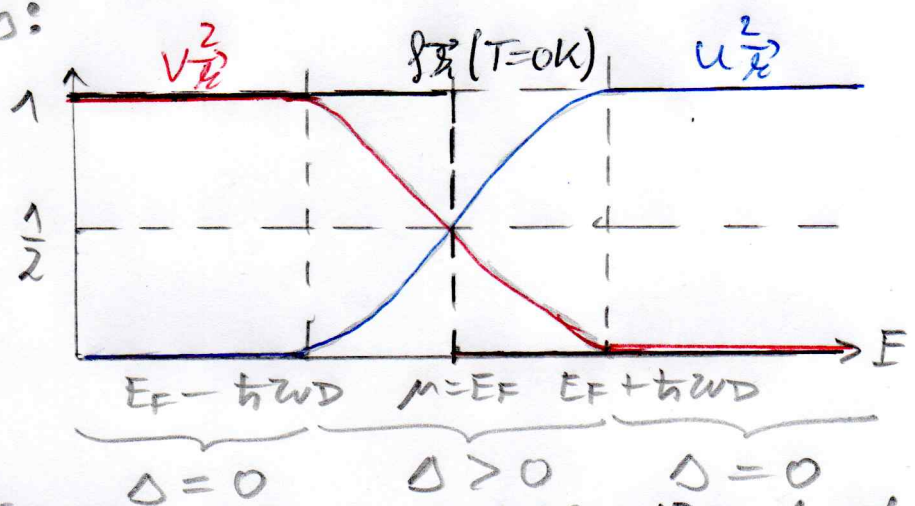 V²k⃗ fk⃗ (T=0K) u²k⃗
1
1/2
E
E_F − ħω_D μ=E_F E_F + ħω_D
Δ = 0 Δ > 0 Δ = 0